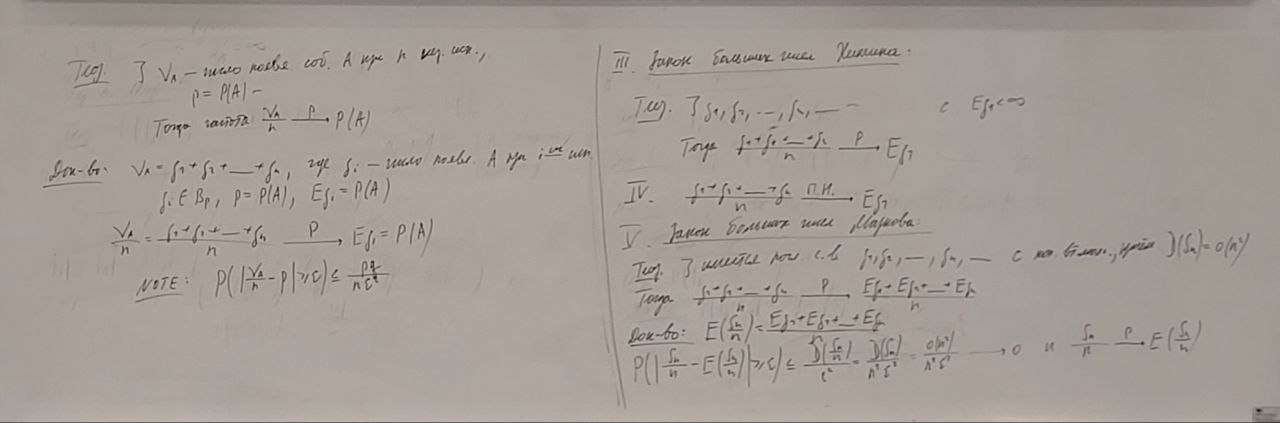 Теор. ] Vₐ – число появл. соб. A при n нез. исп.,
p = P(A) –
Тогда частота Vₐ/n –P→ P(A)
Док-во: Vₐ = ξ₁+ξ₂+...+ξₙ, где ξᵢ – число появл. A при i-ом исп.
ξᵢ ∈ Bₚ, p = P(A), Eξᵢ = P(A)
Vₐ/n = (ξ₁+ξ₂+...+ξₙ)/n –P→ Eξ₁ = P(A)
NOTE: P(|Vₐ/n – p| ≥ ε) ≤ pq/(nε²)
III. Закон больших чисел Хинчина:
Теор. ] ξ₁, ξ₂, ..., ξₙ, ... с Eξ₁<∞
Тогда (ξ₁+ξ₂+...+ξₙ)/n –P→ Eξ₁
IV. (ξ₁+ξ₂+...+ξₙ)/n –п.н.→ Eξ₁
V. Закон больших чисел Маркова:
Теор. ] имеется посл. с.в. ξ₁, ξ₂, ..., ξₙ, ... с кон. , причём D(Sₙ)=o(n²)
Тогда (ξ₁+ξ₂+...+ξₙ)/n –P→ (Eξ₁+Eξ₂+...+Eξₙ)/n
Док-во: E(Sₙ/n) = (Eξ₁+Eξ₂+...+Eξₙ)/n
P(|Sₙ/n – E(Sₙ/n)| ≥ ε) ≤ D(Sₙ/n)/ε² = D(Sₙ)/(n²ε²) = o(n²)/(n²ε²) → 0 и Sₙ/n –P→ E(Sₙ/n)